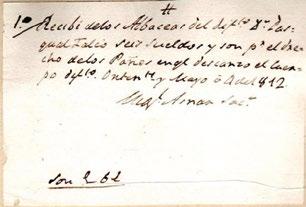 #
1º Recibi de los Albaceas del defto Dn Pas-
qual Falco seis sueldos y son pr el Drec-
ho de los Pañes en ql descanzó el Cuer-
po defto. Ontente y Mayo 6 del 812
Aznar
Son 2 6 l